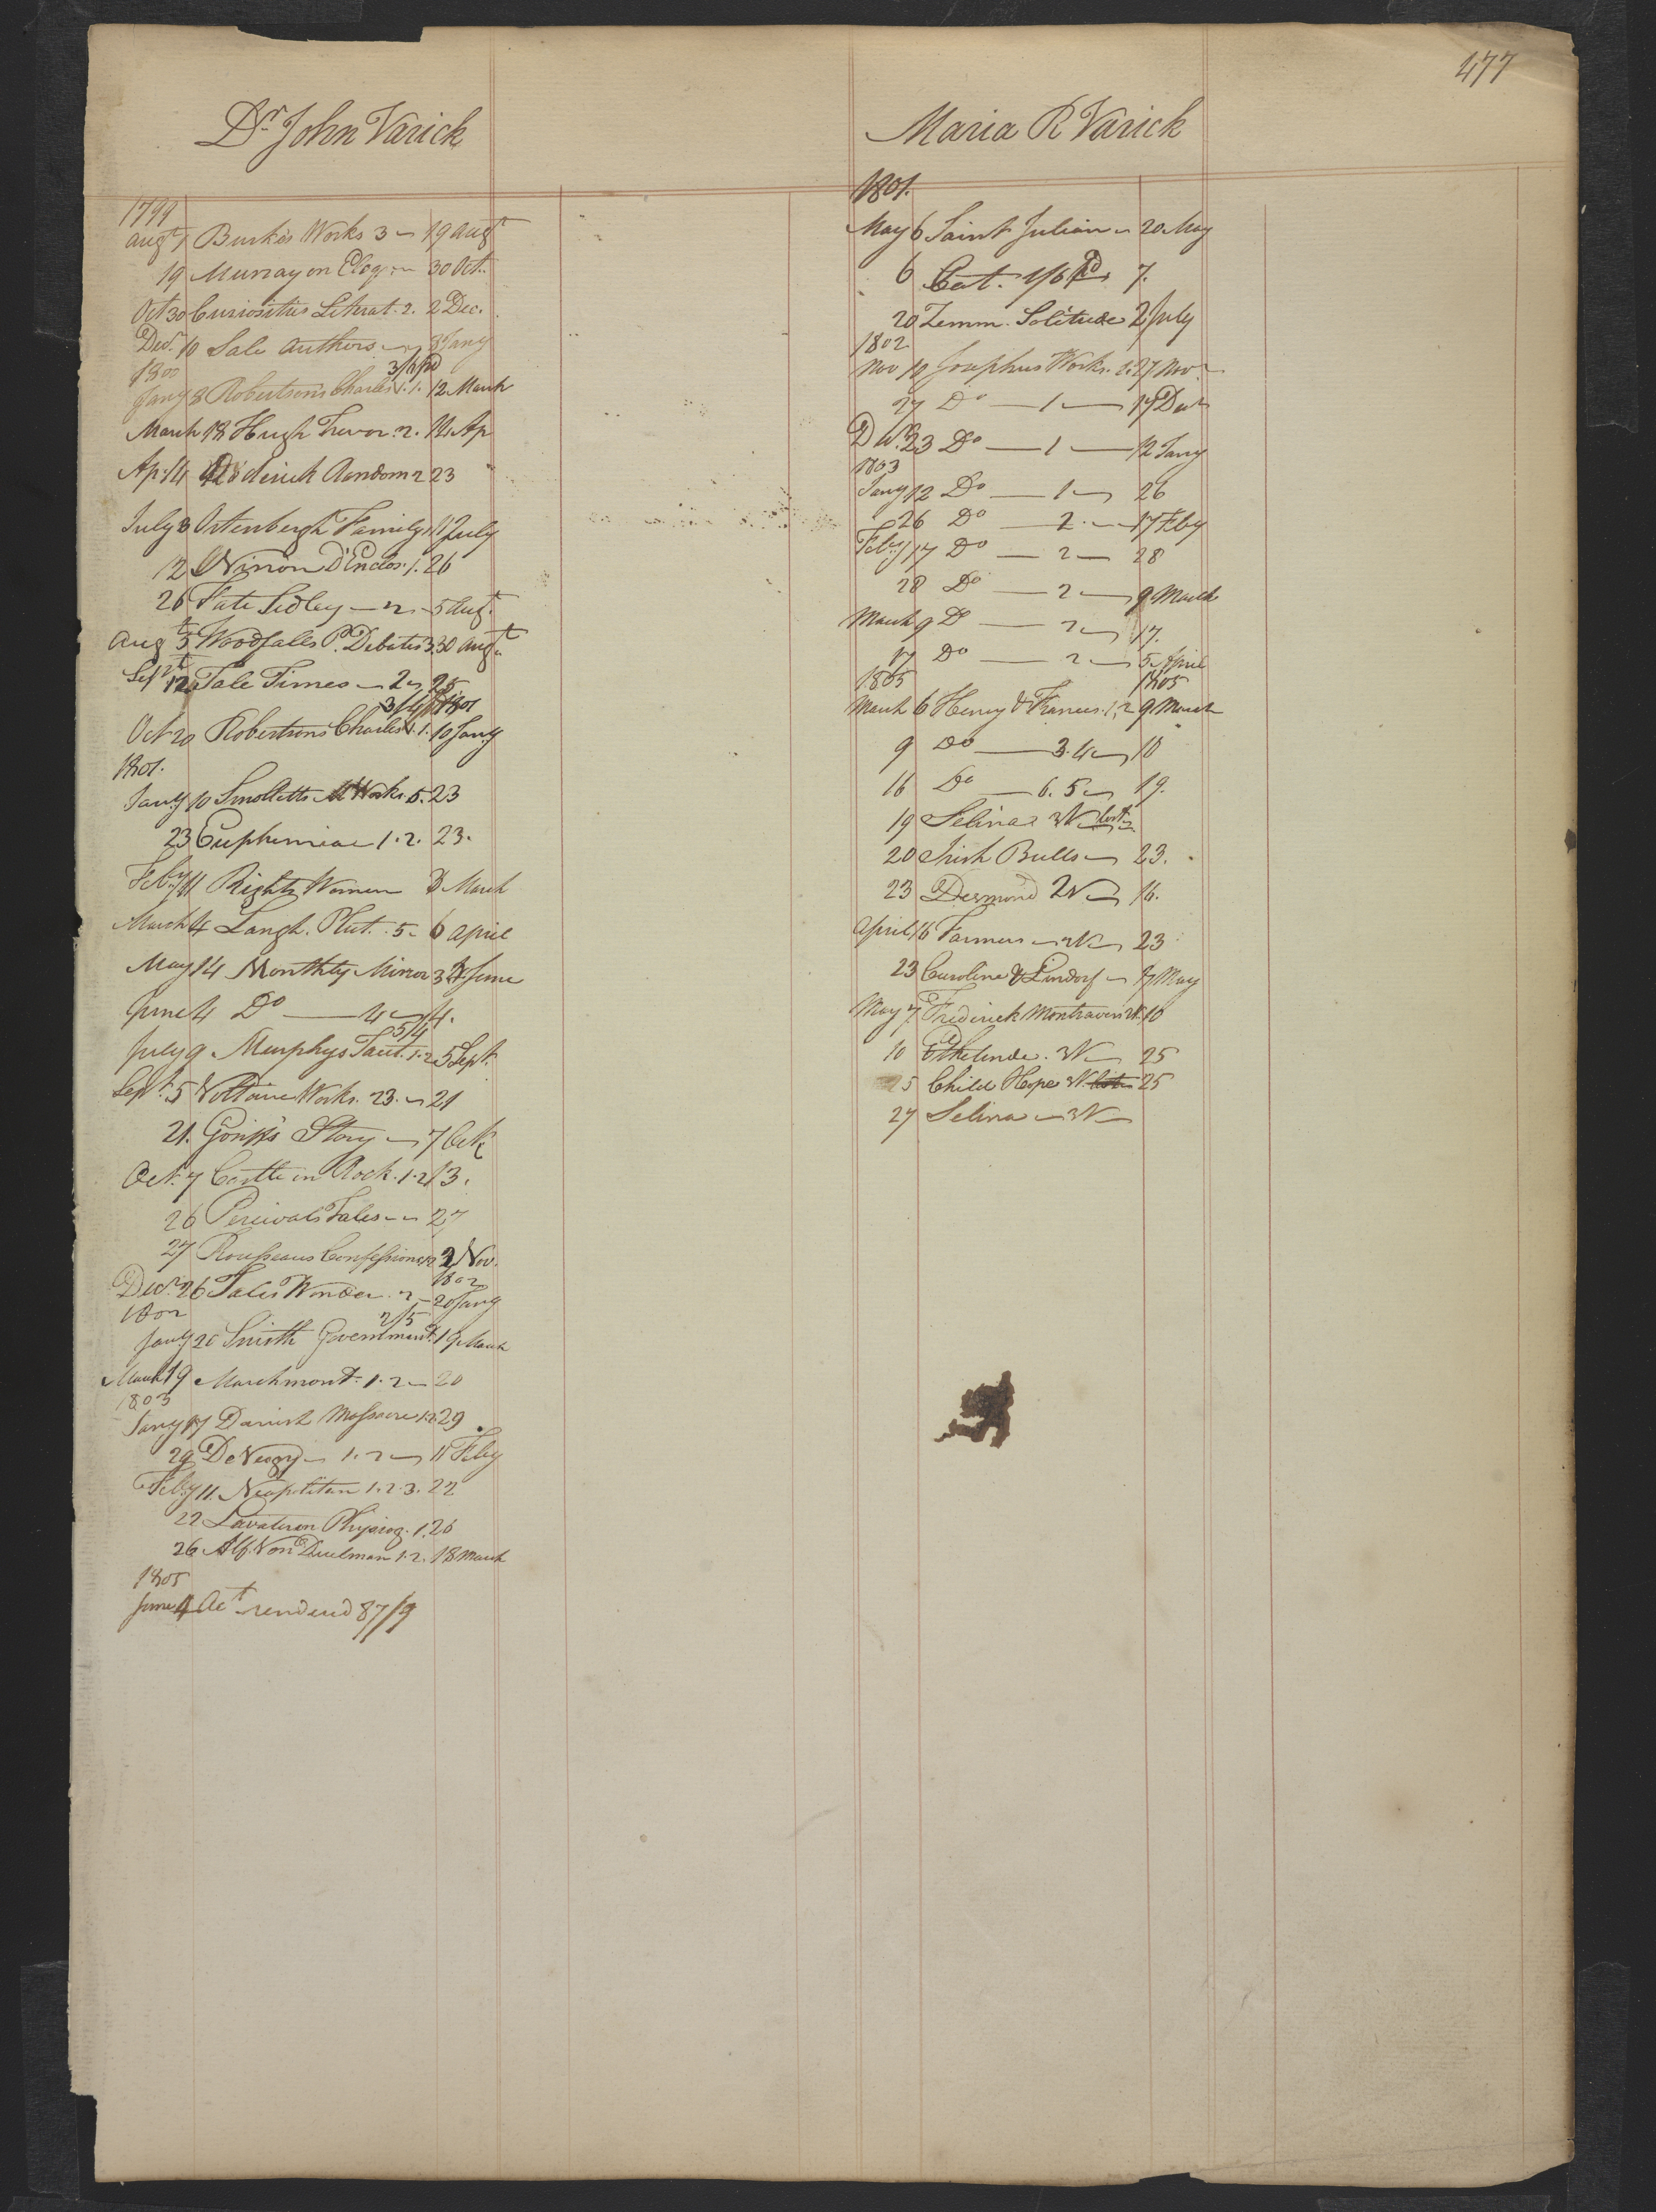 477
Dr John Varick
1799
Augt 1 Burke's Works 3 19 Augt
19 Murray on Eloq 30 Oct.
Oct 30 Curiosities Literat. 2. 2 Dec.
Decr 10 Sale Authors 8 Jany
1800 3/ pd
Jany 8 Robertson's Charles V. 1. 12 March
March 18 Hugh Trevor. 2. 14 Ap
Ap. 14 Roderick Random 2 23
July 8 Ortenbergh Family 1 11 July
12 Ninon D'Enclos. 1. 26
26 Fate Sedley 2 5 Augt
Augt 5 Woodfalls P. Debates 3. 30 Augt
Sept 12 Tale Times 2 25
1801
Oct 20 Robertsons Charles V. 1. 10 Jany
1801.
Jany 10 Smolletts M Works. 5. 23
23 Euphemia 1. 2. 23.
Feby 11 Rights Women 3 March
March 4 Langh. Plut. 5. 6 April
May 14 Monthly Mirror 3 4 June
June 4 Do 4 14.
5/4
July 9 Murphys Tacit. 1. 2 5 Sept.
Sept. 5 Voltaire Works. 23. 21
21. Story 7 Oct
Oct. 7 Castle on Rock. 1. 2 13.
26 Percivals Tales 27
27 Rousseaus Confessions 2 2 Nov.
1802
Decr. 26 Tales Wonder. 2 20 Jany
1802 2/5
Jany 20 Smith Government. 19 March
March 19 Marchmont. 1. 2 20
1803
Jany 17 Danish Massacre 1. 2. 29
29 De 1. 2 11 Feby
Feby 11. Neapolitan 1. 2. 3. 22
22 Lavater on Physiog. 1. 26
26 Alf. Von Duelman 1. 2. 18 March
1805
June 4 Act renderd 87/9
Maria R Varick
1801.
May 6 Saint Julian 20 May
6 Cat. 1/6 Pd 7.
20 Zemm. Solitude 2 July
1802
Nov 10 Josephus Works. 1. 27 Nov
27 Do 1 17 Decr
Decr. 23 Do 1 12 Jany
1803
Jany 12 Do 1 26
26 Do 2. 17 Feby
Feby 17 Do 2 28
28 Do 2 9 March
March 9 Do 2 17.
17 Do 2 5 April
1805 1805
March 6 Henry & Frances. 1. 2 9 March
9 Do 3. 4 16
16 Do 6. 5 19.
19 Selina 3V
20 Irish Bulls 23.
23 Desmond 2V 16.
April 16 Farmers 2V 23
23 Caroline & Lindorf 7 May
May 7 Frederick Montravers 2V. 10
10 Ethelinde. 3V 25
25 Child Hope 3V. 25
27 Selina 3V